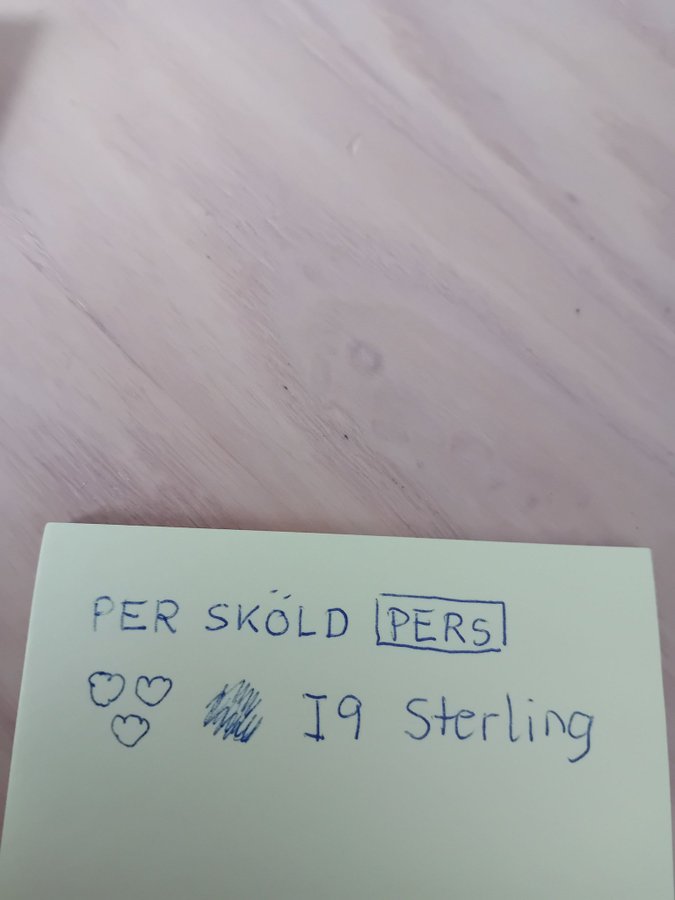 PER SKÖLD PERS
I9 Sterling